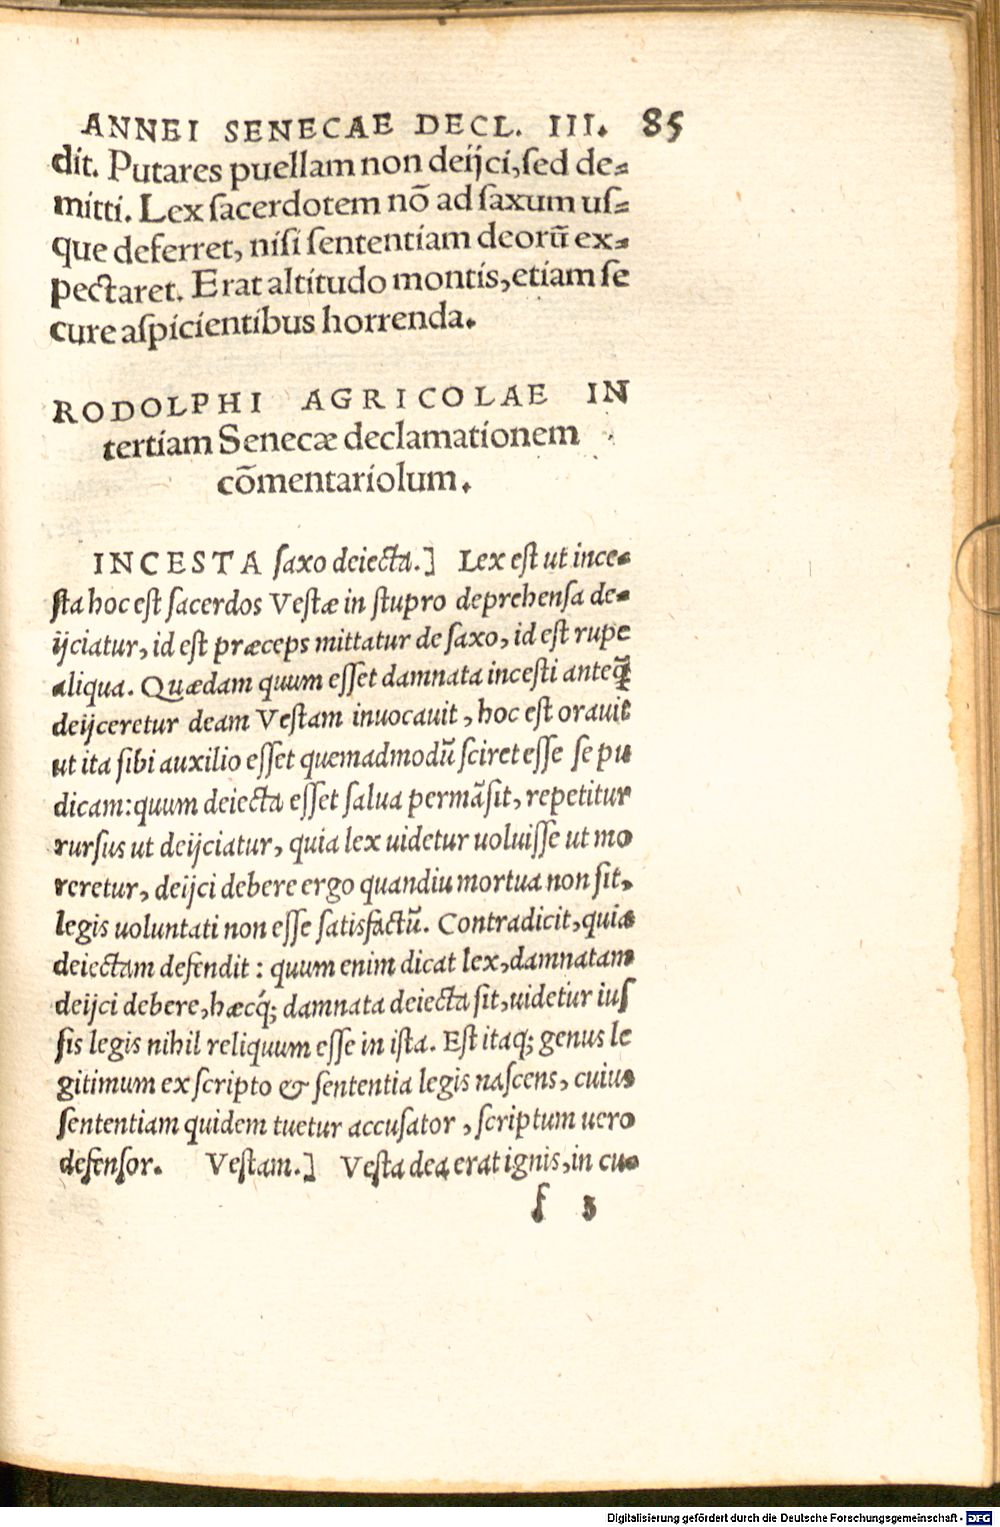 ANNEI SENECAE DECL. III. 85
dit. Putares puellam non deijci, sed de-
mitti. Lex sacerdotem nõ ad saxum us-
que deferret, nisi sententiam deorũ ex-
pectaret. Erat altitudo montis, etiam se
cure aspicientibus horrenda.
RODOLPHI AGRICOLAE IN
tertiam Senecæ declamationem
cõmentariolum.
INCESTA saxo deiecta.] Lex est ut ince-
sta hoc est sacerdos Vestæ in stupro deprehensa de-
ijciatur, id est præceps mittatur de saxo, id est rupe
aliqua. Quædam quum esset damnata incesti anteq̃
deijceretur deam Vestam inuocauit, hoc est orauit
ut ita sibi auxilio esset quemadmodũ sciret esse se pu
dicam: quum deiecta esset salua permãsit, repetitur
rursus ut deijciatur, quia lex uidetur uoluisse ut mo
reretur, deijci debere ergo quandiu mortua non sit,
legis uoluntati non esse satisfactũ. Contradicit, quia
deiectam defendit: quum enim dicat lex, damnatam
deijci debere, hæcq́; damnata deiecta sit, uidetur ius
sis legis nihil reliquum esse in ista. Est itaq; genus le
gitimum ex scripto & sententia legis nascens, cuius
sententiam quidem tuetur accusator, scriptum uero
defensor. Vestam.] Vesta dea erat ignis, in cu-
f 3
Digitalisierung gefördert durch die Deutsche Forschungsgemeinschaft - DFG